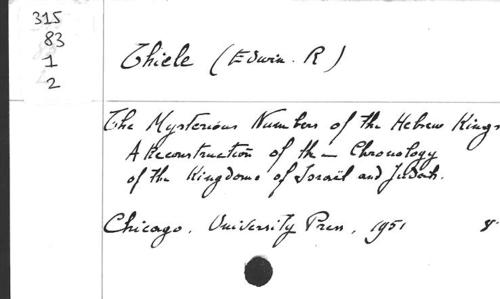 315
83
1
2
Thiele (Edwin. R)
The Mysterious Numbers of the Hebrew Kings
A Reconstruction of the Chronology
of the Kingdoms of Israël and Judah.
Chicago. University Press, 1951 8°